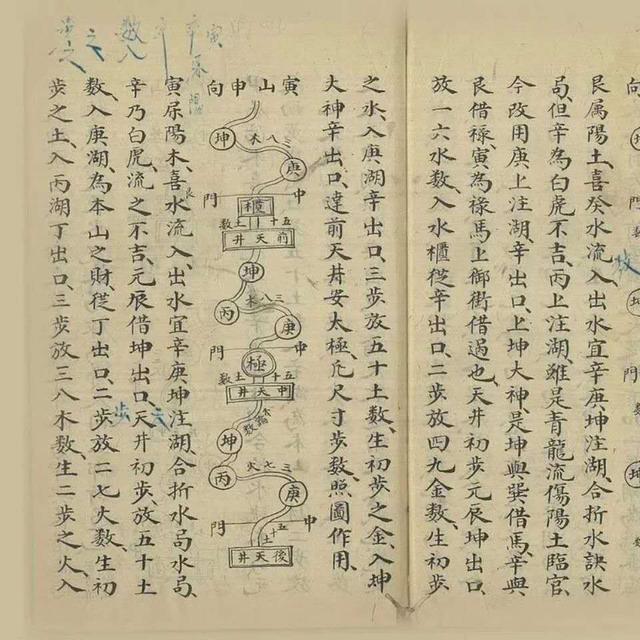 艮属陽土、喜癸水流入、出水宜辛庚坤注湖、合折水訣水
局、但辛為白虎不吉、丙上注湖、雖是青龍流傷陽土臨官、
今改用庚上注湖、辛出口、上坤大神是坤與巽借馬、辛與
艮借祿、寅為祿馬上御街借過也、天井初步元辰坤出口、
放一六水数、入水櫃從辛出口、二步放四九金数、生初步
之水、入庚湖辛出口、三步放五十土数、生初步之金、入坤
大神辛出口、違前天井安太極、凡尺寸步数、照圖作用、
寅山申向
坤
三八木
庚
門
申
櫃
五十土数
前天井
坤
三八木
丙
庚
門
申
極
五十土数
中天井
坤
三七火
丙
庚
門
申
五十土
後天井
寅屎陽木、喜艮水流入、出水宜辛庚坤注湖、合折水局水局、
辛乃白虎、流之不吉、元辰借坤出口、天井初步、放五十土
数、入庚湖、為本山之財、從丁出口、二步放二七火数、生初
步之土、入丙湖丁出口、三步放三八木数、生二步之火、入